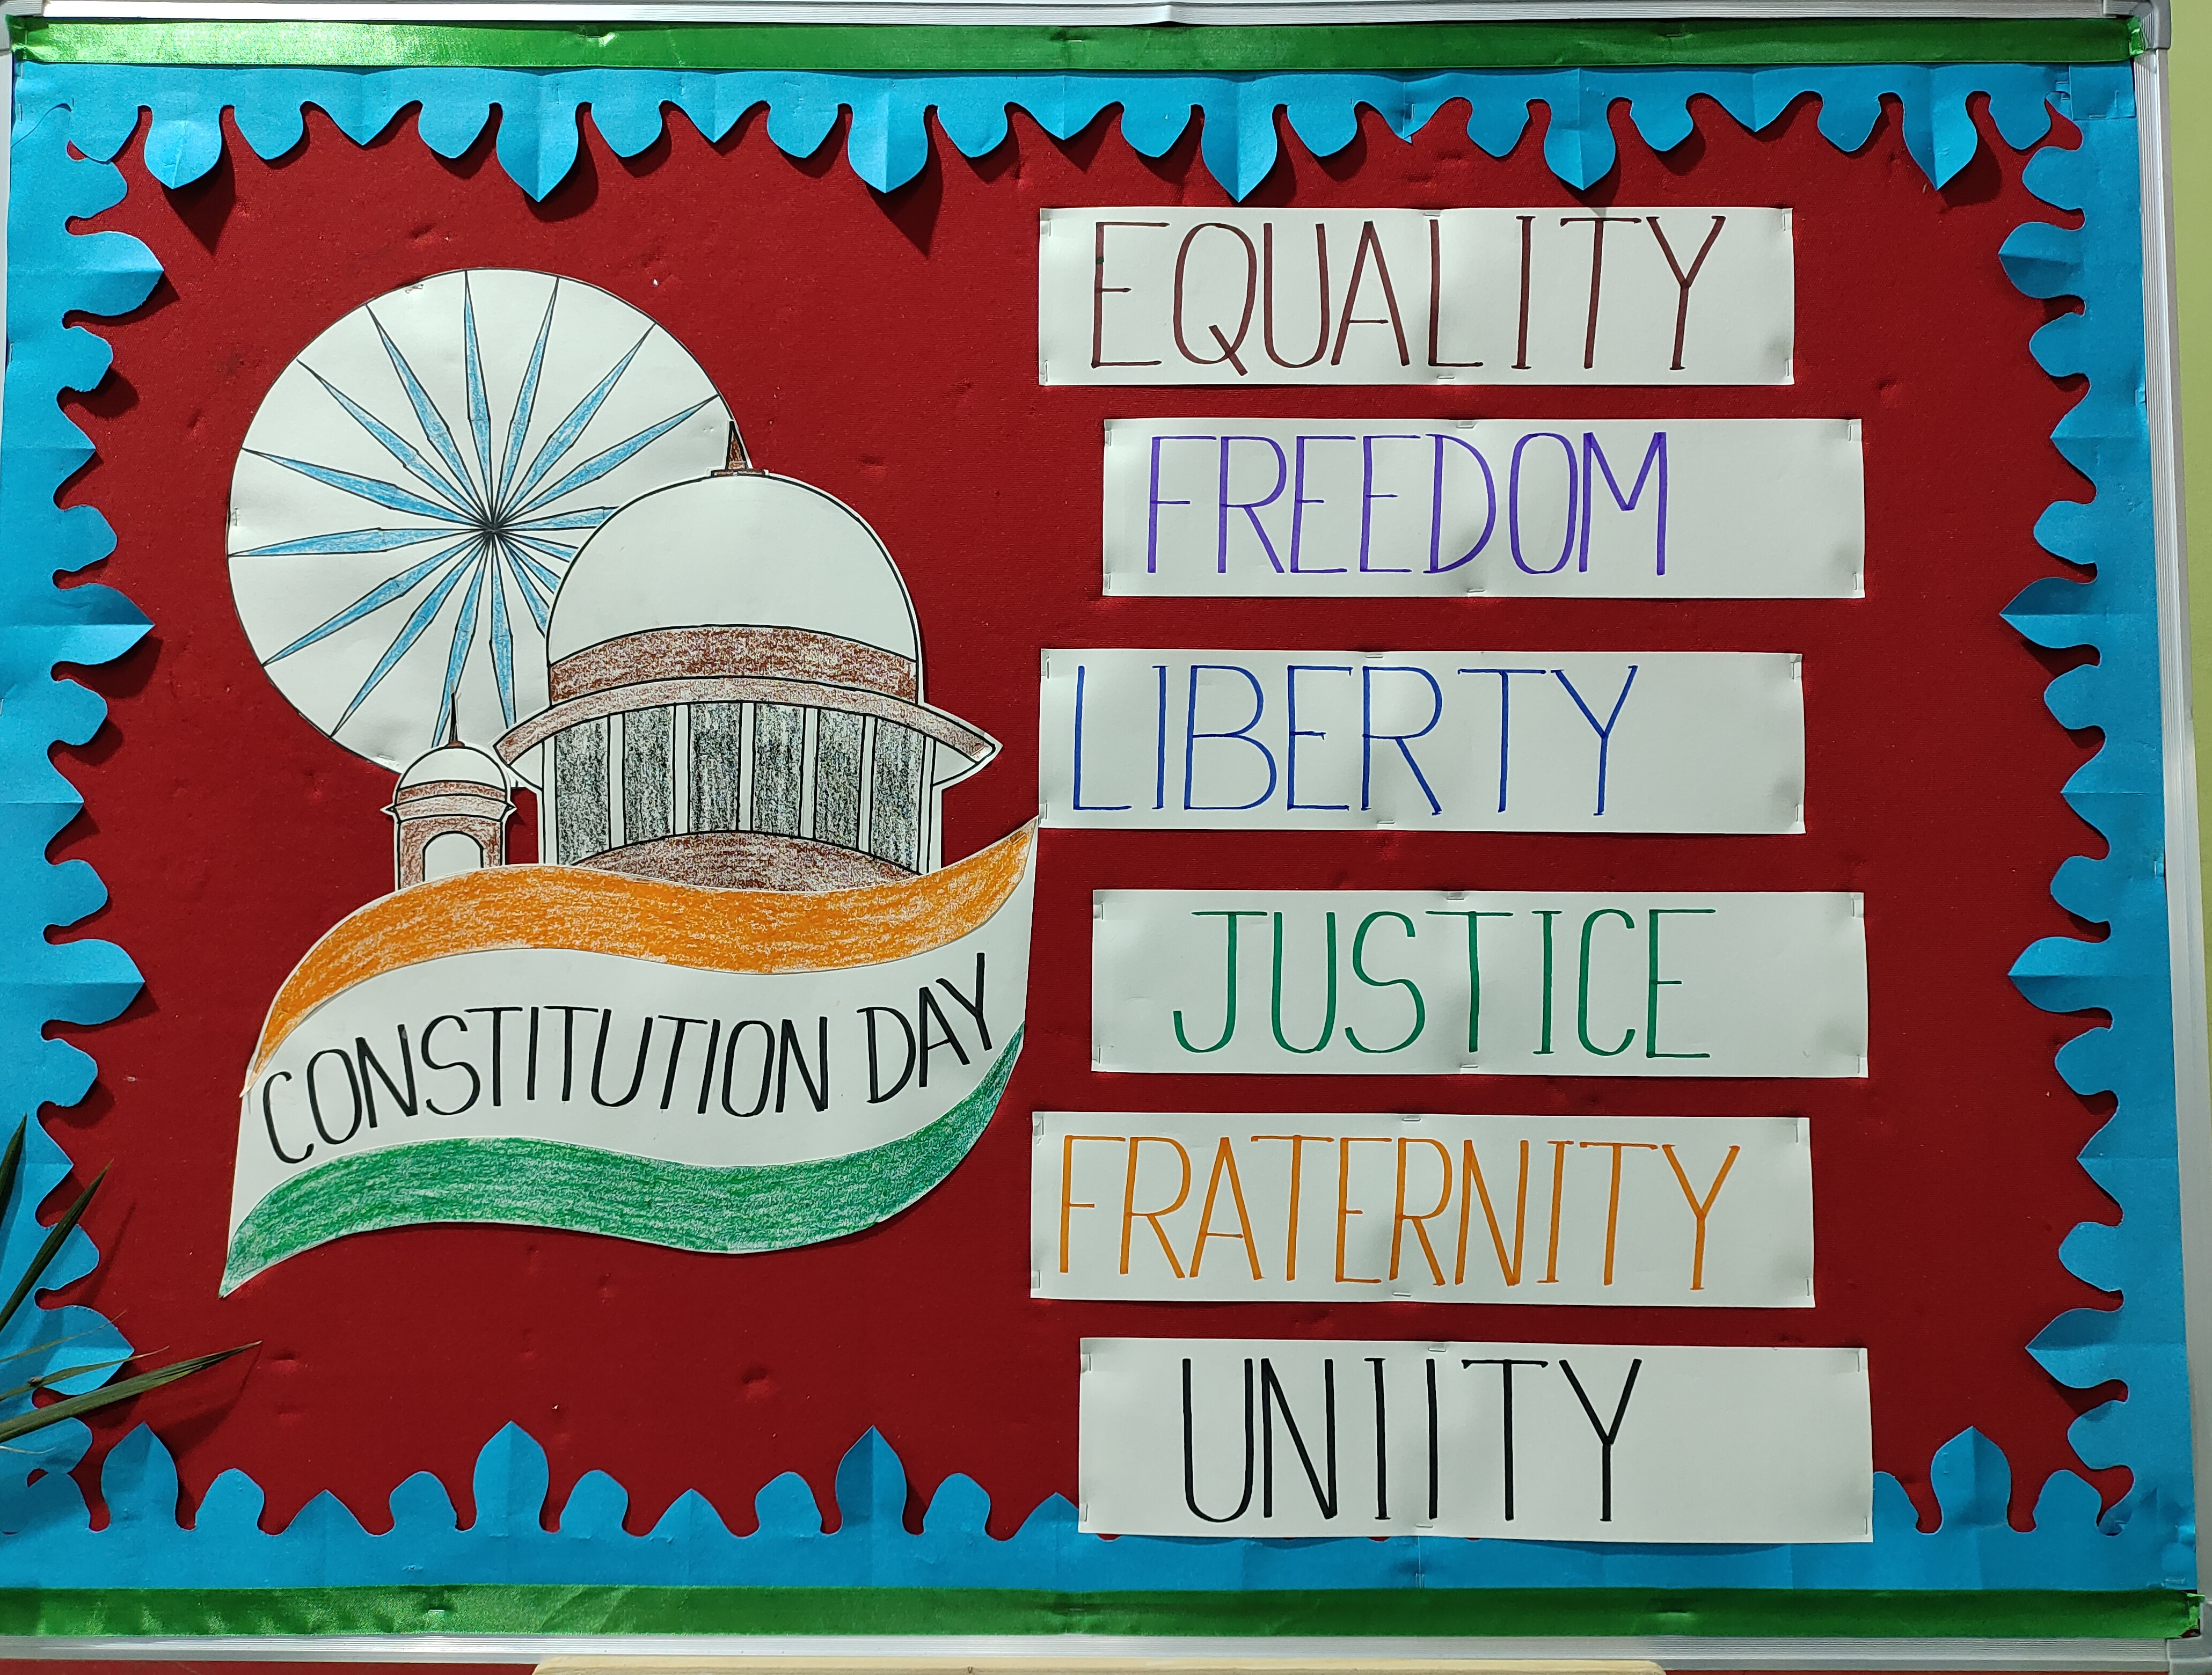 EQUALITY
FREEDOM
LIBERTY
JUSTICE
FRATERNITY
UNIITY
CONSTITUTION DAY